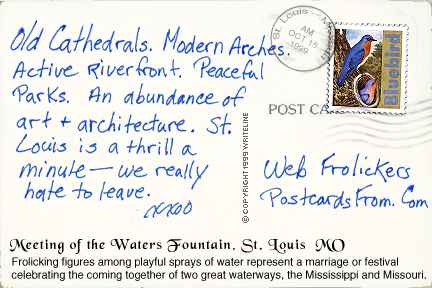 Old Cathedrals. Modern Arches.
Active Riverfront. Peaceful
Parks. An abundance of
art + architecture. St.
Louis is a thrill a
minute — we really
hate to leave.
xxoo
© COPYRIGHT 1999 WRITELINE
St. Louis
AM
OCT 15
1999
Bluebird
POST CA
Web Frolickers
PostcardsFrom.Com
Meeting of the Waters Fountain, St. Louis MO
Frolicking figures among playful sprays of water represent a marriage or festival
celebrating the coming together of two great waterways, the Mississippi and Missouri.